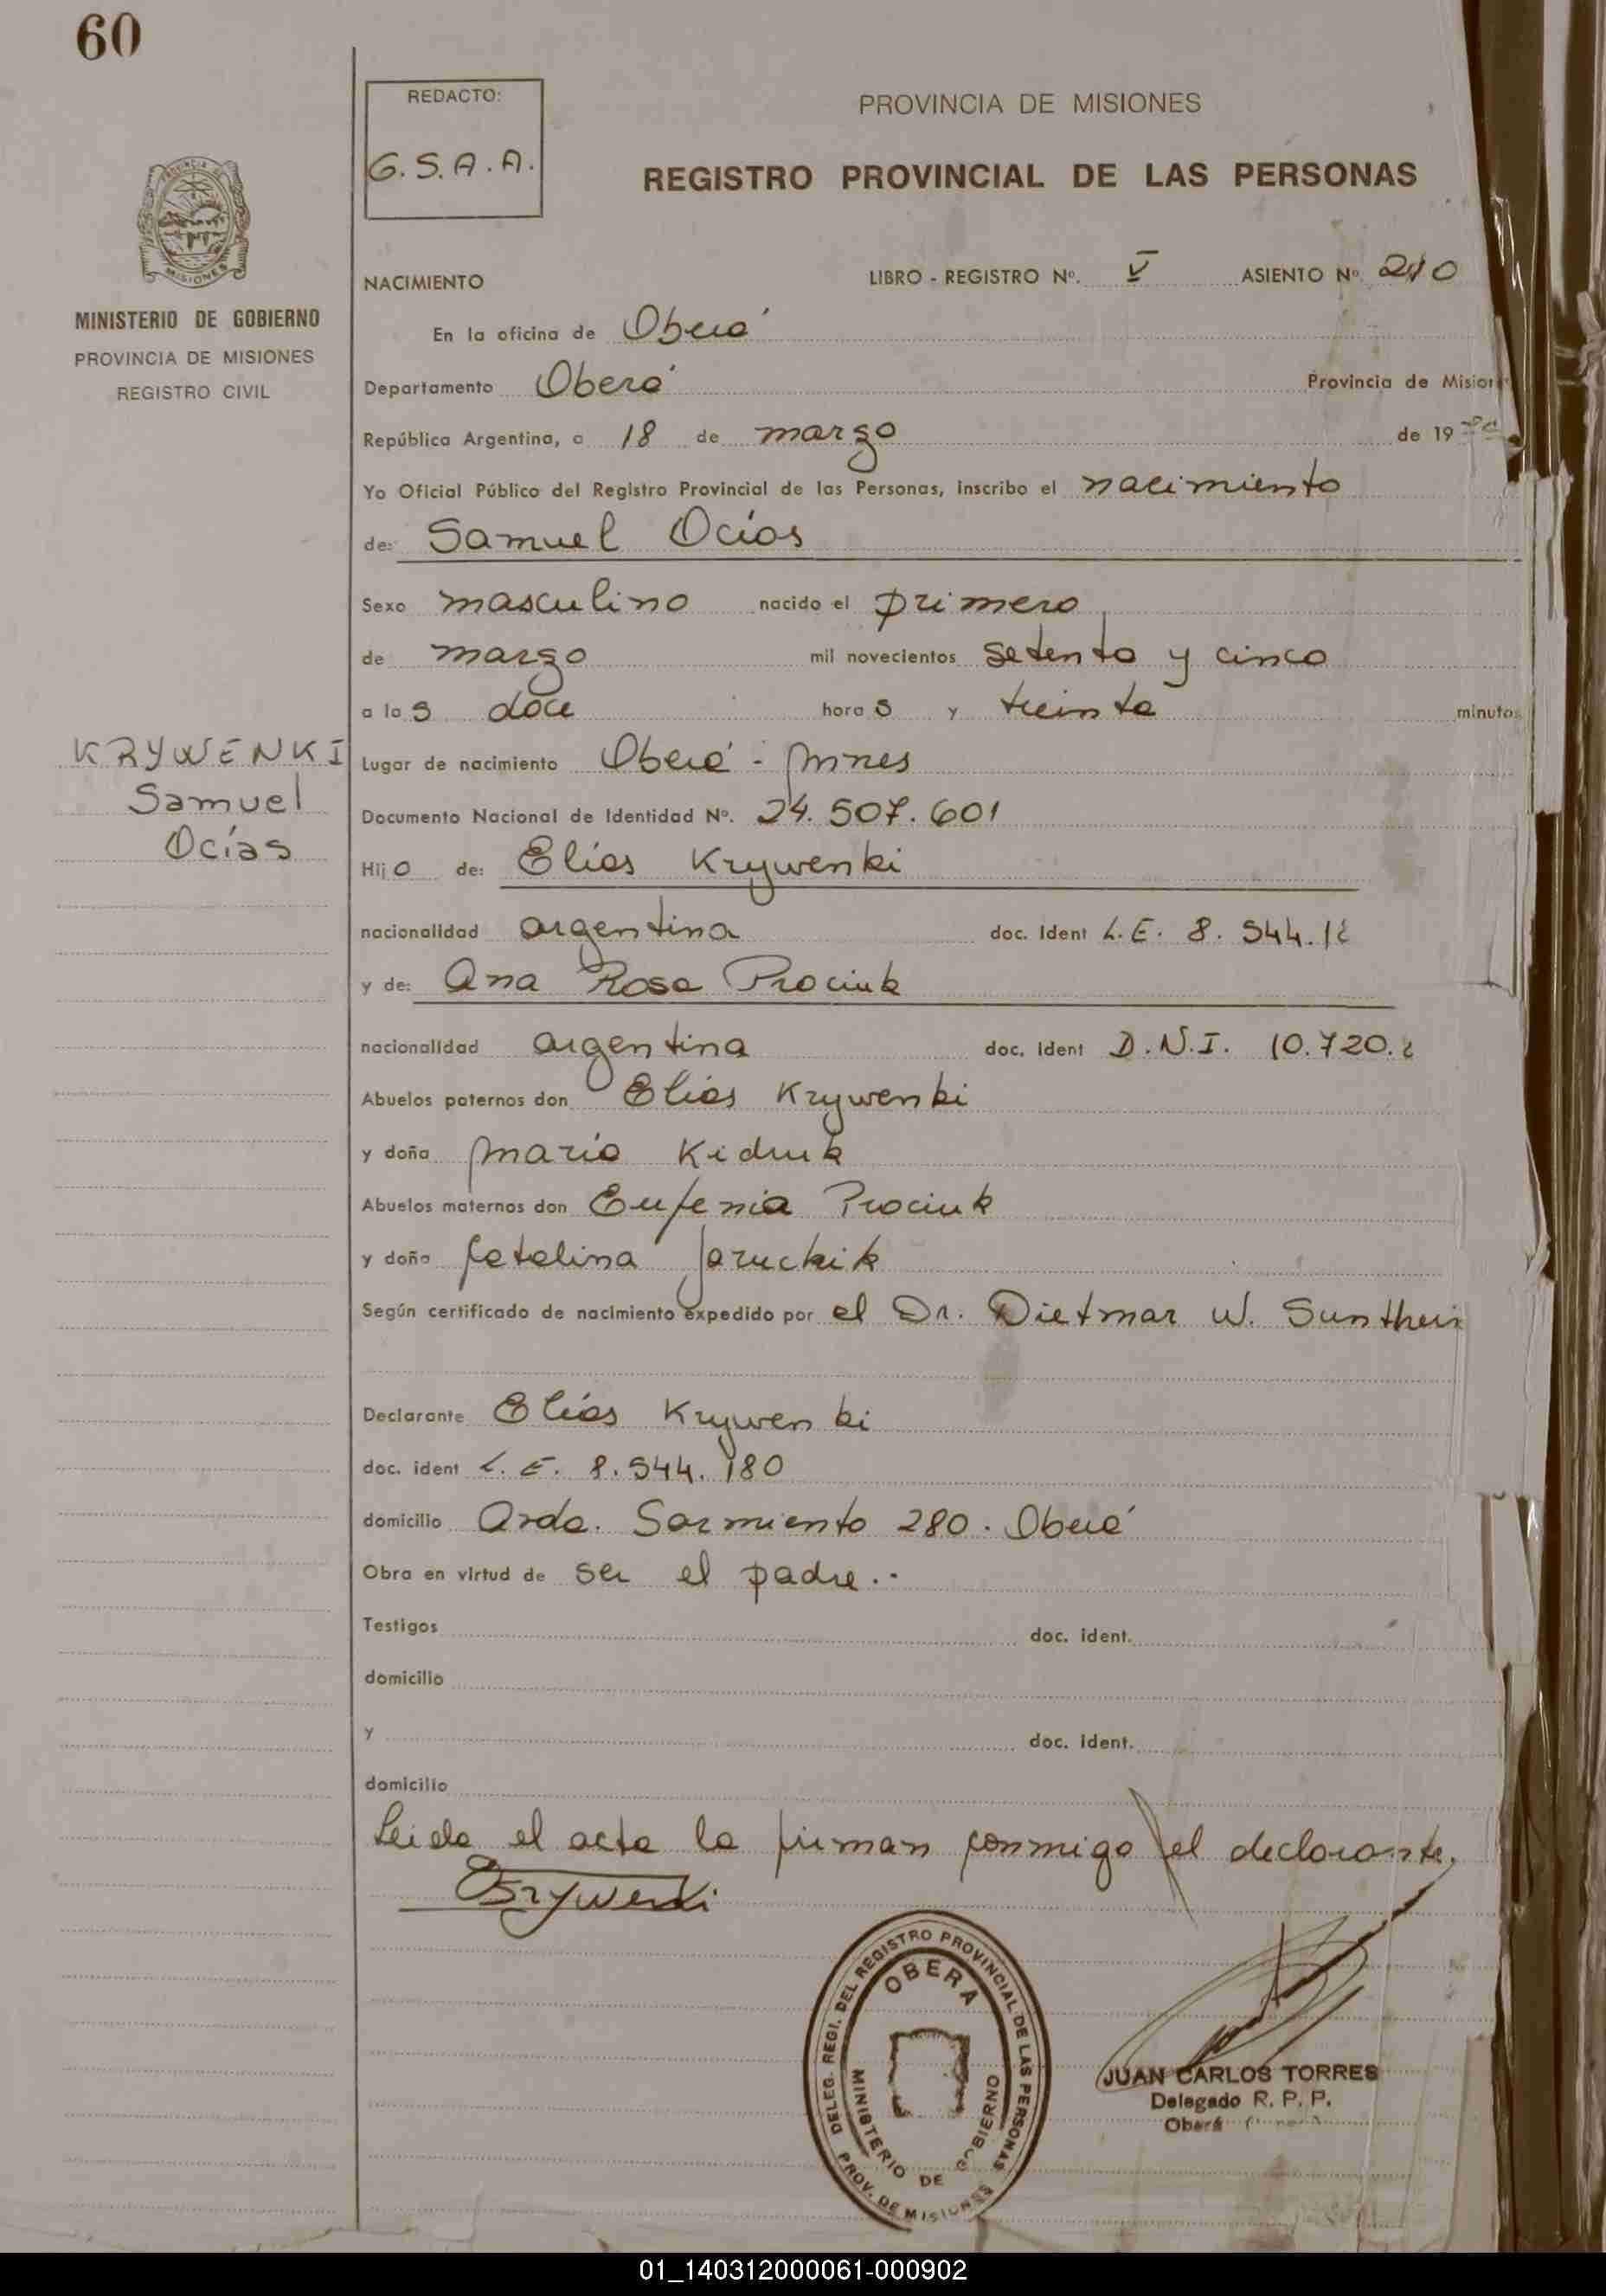 60
REDACTO:
G. S. A. A.
PROVINCIA DE MISIONES
REGISTRO PROVINCIAL DE LAS PERSONAS
PROVINCIA
MISIONES
MINISTERIO DE GOBIERNO
PROVINCIA DE MISIONES
REGISTRO CIVIL
NACIMIENTO LIBRO - REGISTRO Nº. V ASIENTO Nº. 210
En la oficina de Oberá
Departamento Oberá Provincia de Mision
República Argentina, a 18 de marzo de 19
Yo Oficial Público del Registro Provincial de las Personas, inscribo el nacimiento
de: Samuel Ocías
Sexo masculino nacido el primero
de marzo mil novecientos setenta y cinco
a las doce horas y treinta minutos
Lugar de nacimiento Oberá - Mnes
KRYWENKI
Samuel
Ocías
Documento Nacional de Identidad Nº. 24.507.601
Hijo de: Elías Krywenki
nacionalidad argentina doc. Ident L.E. 8.544.18
y de: Ana Rosa Prociuk
nacionalidad argentina doc. Ident D.N.I. 10.720.
Abuelos paternos don Elías Krywenki
y doña María Kidruk
Abuelos maternos don Eufenia Prociuk
y doña Catalina Jaruchik
Según certificado de nacimiento expedido por el Dr. Dietmar W. Sunthei
Declarante Elías Krywenki
doc. ident L.E. 8.544.180
domicilio Avda. Sarmiento 280. Oberá
Obra en virtud de ser el padre..
Testigos doc. ident.
domicilio
y doc. ident.
domicilio
Leida el acta la firman conmigo el declarante.
EKrywenki
DELEG. REGI. DEL REGISTRO PROVINCIAL DE LAS PERSONAS
PROV. DE MISIONES
OBERA
MINISTERIO DE GOBIERNO
JUAN CARLOS TORRES
Delegado R. P. P.
Oberá
01_140312000061-000902